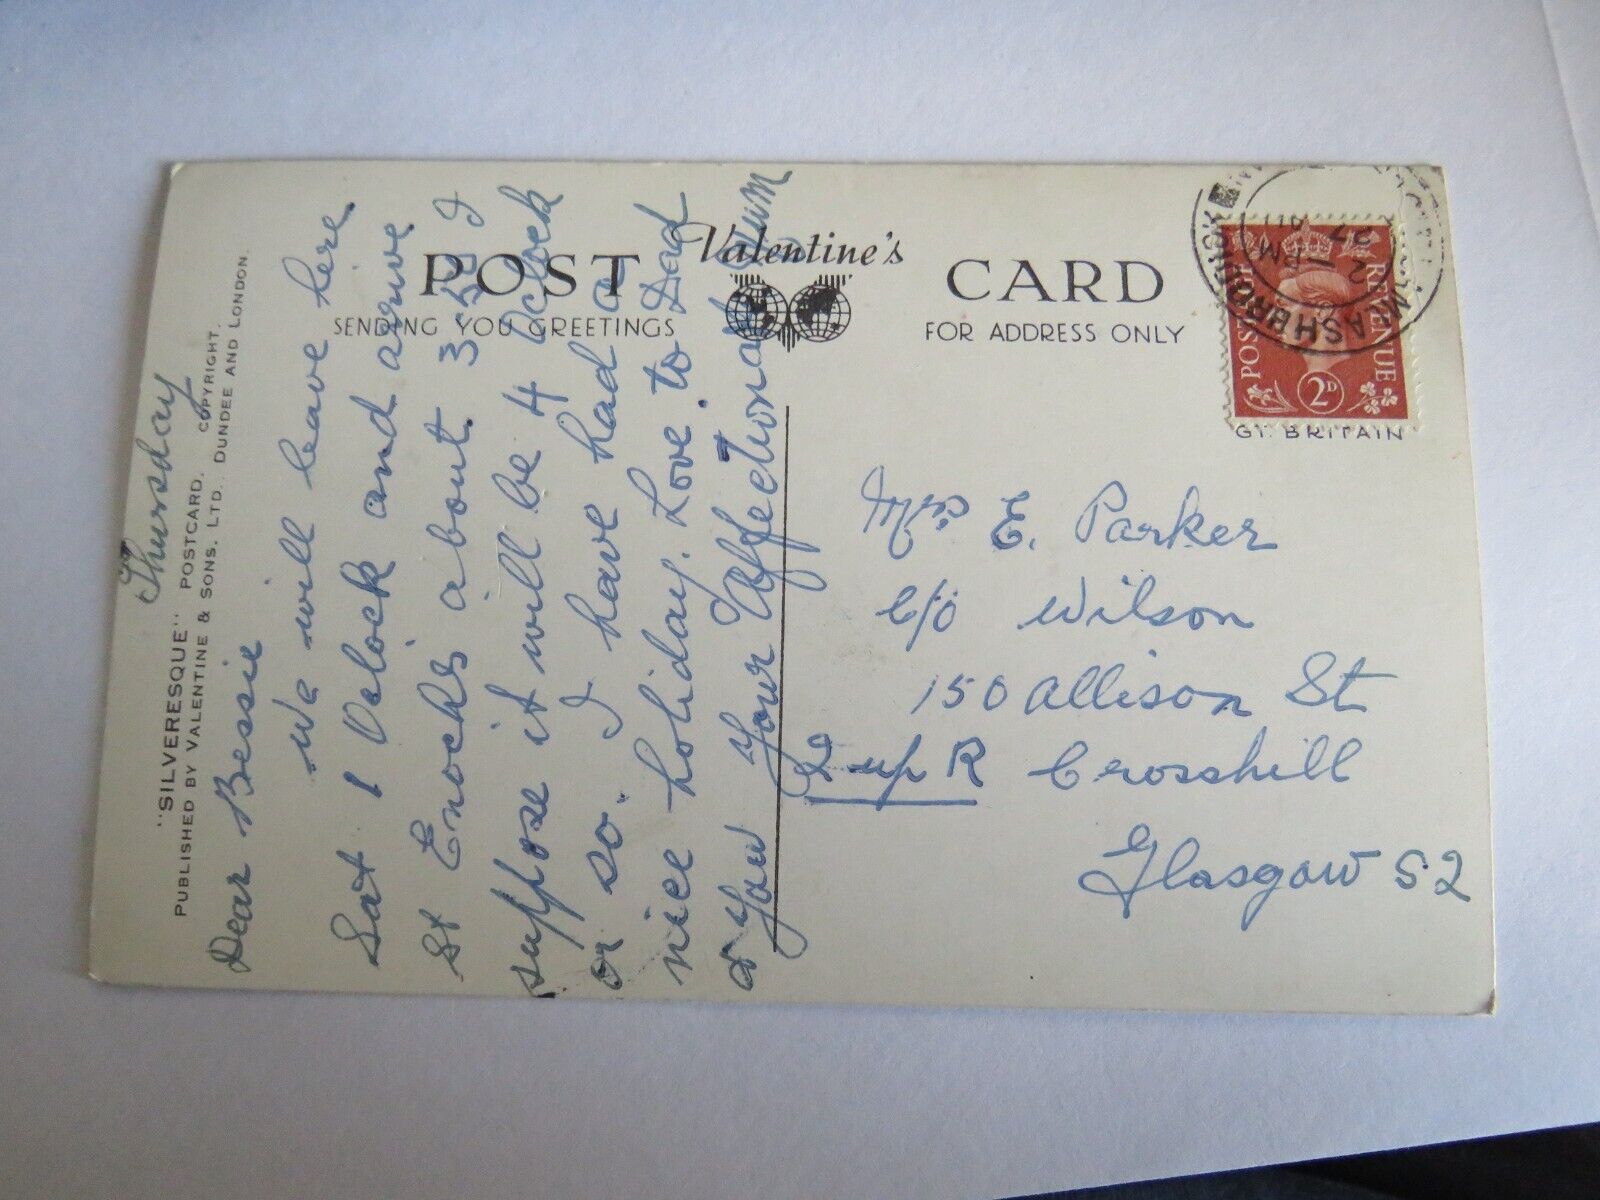 "SILVERESQUE" POSTCARD. COPYRIGHT.
PUBLISHED BY VALENTINE & SONS, LTD., DUNDEE AND LONDON.
POST CARD
Valentine's
SENDING YOU GREETINGS
FOR ADDRESS ONLY
GT. BRITAIN
POSTAGE REVENUE
2D
2 - PM
27
Thursday
Dear Bessie
We will leave here
Sat 1 Oclock and arrive
St Enochs about 3-30 I
suppose it will be 4 Oclock
or so. I have had a
nice holiday. Love to Dad
& You Your Affectionate Mum
Mrs E. Parker
C/o Wilson
150 Allison St
2 up R Crosshill
Glasgow S.2